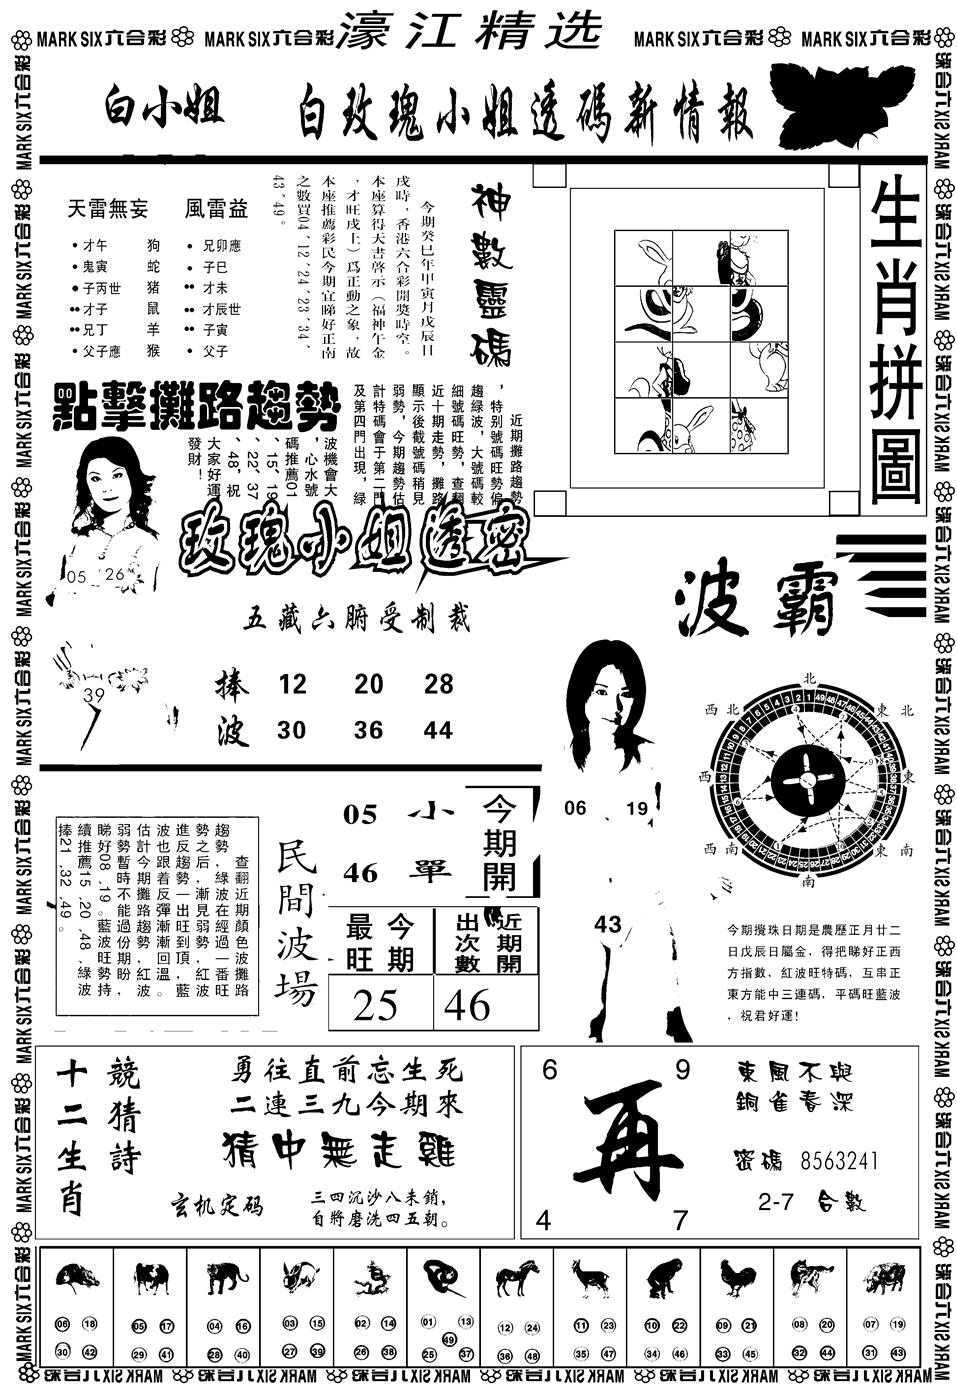 MARK SIX六合彩 MARK SIX六合彩 濠江精选 MARK SIX六合彩 MARK SIX六合彩
白小姐 白玫瑰小姐透碼新情報
生肖拼圖
神數靈碼
今期癸巳年甲寅月戊辰日
戌時，香港六合彩開獎時空。
本座算得天書啓示（福神午金
，才旺戌上）爲正動之象，故
本座推薦彩民今期宜睇好正南
之數買04、12、24、23、34、
43、49。
天雷無妄 風雷益
才午 狗 兄卯應
鬼寅 蛇 子巳
子丙世 猪 才未
才子 鼠 才辰世
兄丁 羊 子寅
父子應 猴 父子
點擊攤路趨勢
近期攤路趨勢
，特别號碼旺勢偏
趨綠波，大號碼較
細號碼旺勢，查翻
近十期走勢，攤路
顯示後截號碼稍見
弱勢，今期趨勢估
計特碼會于第二門
及第四門出現，綠
波機會大
，心水號
碼推薦01
、15、19
、22、37
、48，祝
大家好運
發財！
05 26
39
玫瑰小姐透密
五藏六腑受制裁
捧 12 20 28
波 30 36 44
波霸
06 19
43
北
西北 東北
西 東
西南 東南
南
今期攪珠日期是農歷正月廿二
日戊辰日屬金，得把睇好正西
方指數，紅波旺特碼，互串正
東方能中三連碼，平碼旺藍波
，祝君好運!
查翻近期顏色波攤路
趨勢，綠波在經過一番旺
勢之后，漸見弱勢，紅波
進反趨勢一出旺到頂，藍
波也跟着反彈漸漸回溫。
估計今期攤路趨勢，紅波
弱勢暫時不能過份期盼，
睇好08、19。藍波旺勢持
續推薦15、20、48，綠波
捧21、32、49。
民間波場
05 小
46 單
今期開
最旺 今期
出次數 近期開
25 46
十二生肖
競猜詩
勇往直前忘生死
二連三九今期來
猜中無走雞
玄机定码
三四沉沙八未銷,
自將磨洗四五朝。
6 9
再
4 7
東風不與
銅雀春深
密碼 8563241
2-7 合數
06 18 30 42
05 17 29 41
04 16 28 40
03 15 27 39
02 14 26 38
01 13 49 25 37
12 24 36 48
11 23 35 47
10 22 34 46
09 21 33 45
08 20 32 44
07 19 31 43